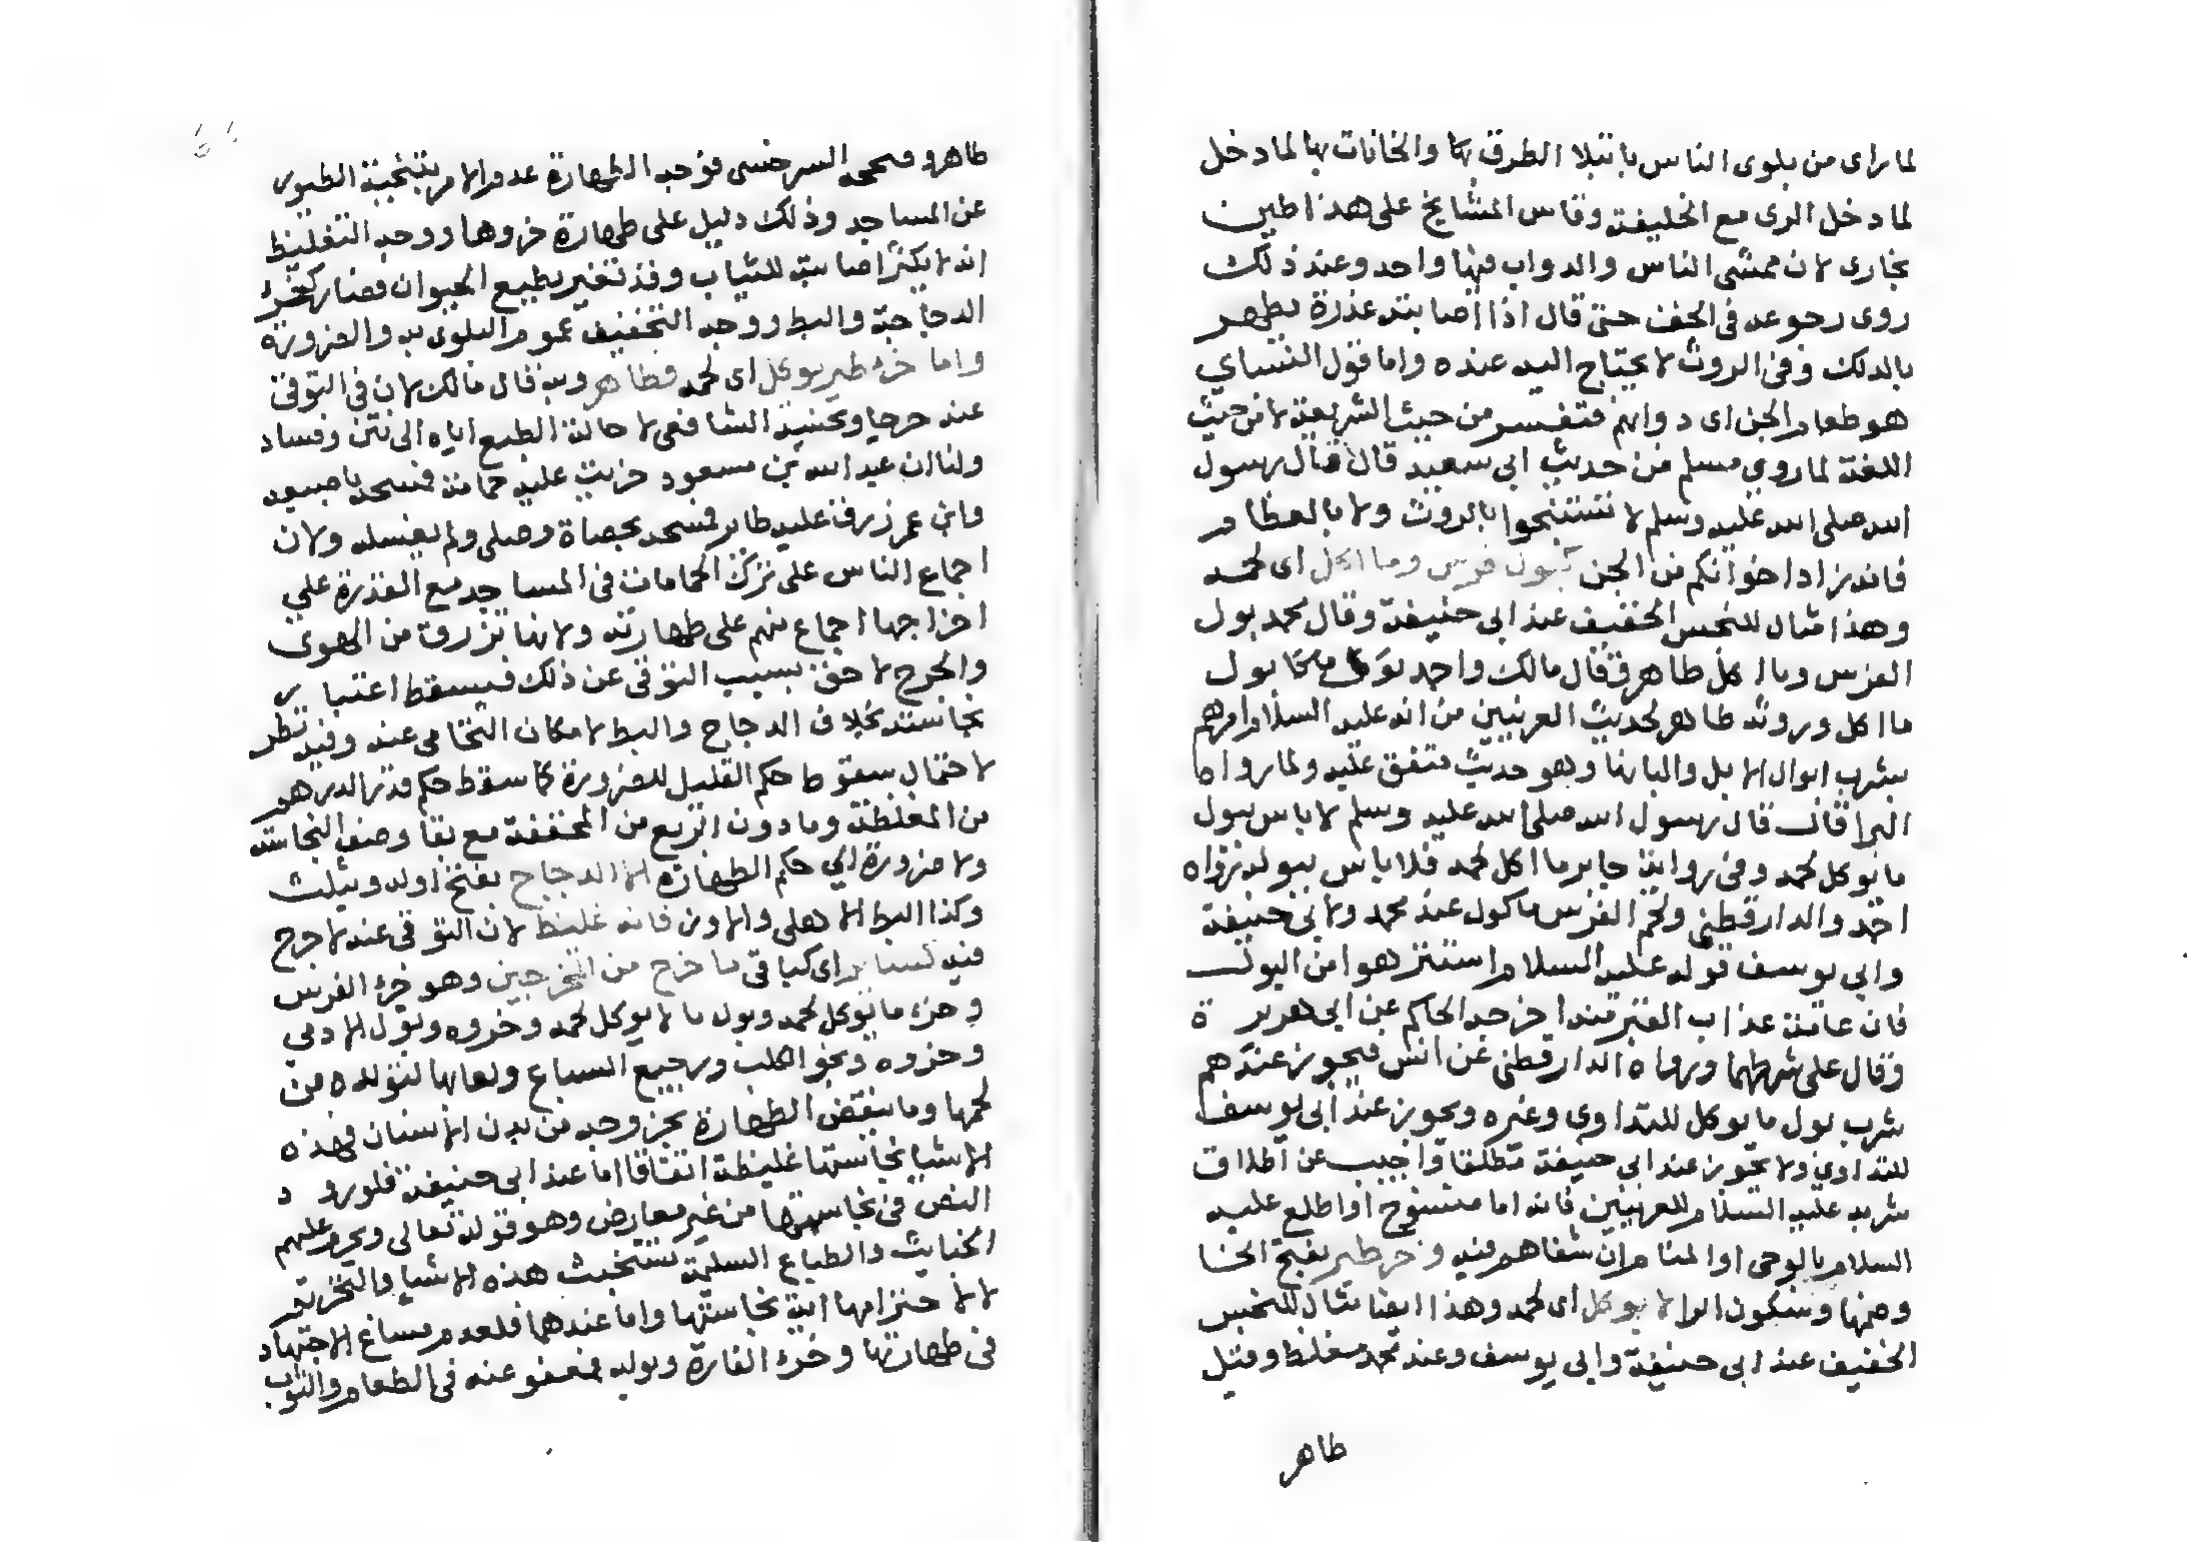 لما راى من بلوى الناس بابتلا الطرق بها والخانات بها لما دخل
لما دخل الرى مع الخليفة وقاس المشايخ على هذا طين
بخارى لان ممشى الناس والدواب فيها واحد وعند ذلك
روى رجوعه فى الخف حتى قال اذا اصابته عذرة يطهر
بالدلك وفى الروث لا يحتاج اليه عنده واما قول النساي
هو طعام الجن اى دوابهم فتفسير من حيث الشريعة لا من حيث
اللغة لما روى مسلم من حديث ابى سعيد قال قال رسول
الله صلى الله عليه وسلم لا تستنجوا بالروث ولا بالعظام
فانه زاد اخوانكم من الجن كبول فرس وما اكل اى لحمه
وهذا مثال للنجس الخفيف عند ابى حنيفة وقال محمد بول
الفرس وما اكل طاهر وقال مالك واحمد بول ما
ما اكل وروثه طاهر لحديث العرنيين من انه عليه السلام امرهم
بشرب ابوال الابل والبانها وهو حديث متفق عليه ولما رواه
البرا قال قال رسول الله صلى الله عليه وسلم لا باس ببول
ما يوكل لحمه وفى رواية جابر ما اكل لحمه فلا باس ببوله رواه
احمد والدارقطنى ولحم الفرس ماكول عند محمد ولابى حنيفة
وابى يوسف قوله عليه السلام استنزهوا من البول
فان عامة عذاب القبر منه اخرجه الحاكم عن ابى هريرة
وقال على شرطهما ورواه الدارقطنى عن انس فيجوز عندهم
شرب بول ما يوكل للتداوى وغيره ويجوز عند ابى يوسف
للتداوى ولا يجوز عند ابى حنيفة مطلقا واجيب عن اطلاق
شربه عليه السلام للعرنيين فانه اما منسوخ او اطلع عليه
السلام بالوحى او المنام ان شفاهم فيه وخر طير بفتح الخا
وضمها وسكون الرا لا يوكل اى لحمه وهذا ايضا مثال للنجس
الخفيف عند ابى حنيفة وابى يوسف وعند محمد مغلظ وقيل
طاهر
طاهر وصححه السرخسى فوجه الطهارة عدم الامر بتنحية الطيور
عن المساجد وذلك دليل على طهارة خروها ووجه التغليظ
انه لا يكثر اصابته للثياب وقد تغير بطبع الحيوان فصار كخرء
الدجاجة والبط ووجه التخفيف عموم البلوى به والضرورة
واما خرء طير يوكل اى لحمه فطاهر وبه قال مالك لان فى التوقى
عنه حرجا وبخسه الشافعى لاحالة الطبع اياه الى نتن وفساد
ولنا ان عبد الله بن مسعود خريت عليه حمامة فمسحه باصبعه
وابن عمر زرق عليه طاير فمسحه بحصاة وصلى ولم يغسله ولان
اجماع الناس على ترك الحمامات فى المساجد مع القدرة على
اخراجها اجماع منهم على طهارته ولانها تزرق من الهوى
والحرج لاحق بسبب التوقى عن ذلك فيسقط اعتبار
نجاسته بخلاف الدجاج والبط لامكان التحامى عنه وفيه نظر
لاحتمال سقوط حكم القليل للضرورة كما سقط حكم قدر الدرهم
من المغلظة وما دون الربع من المخففة مع بقا وصف النجاسة
ولا ضرورة الى حكم الطهارة الا الدجاج بفتح اوله ويثلث
وكذا البط الاهلى والاوز فانه غليظ لان التوقى عنه لا حرج
فيه كساير اى كباقى ما خرج من المخرجين وهو خرء الفرس
وخرء ما يوكل لحمه وبول ما لا يوكل لحمه وخروه وبول الادمى
وخروه ونجو الكلب ورجيع السباع ولعابها لتولده من
لحمها وما ينقض الطهارة بخروجه من بدن الانسان فهذه
الاشيا نجاستها غليظة اتفاقا اما عند ابى حنيفة فلورود
النص فى نجاستها من غير معارض وهو قوله تعالى ويحرم عليهم
الخبايث والطباع السليمة تستخبث هذه الاشيا والتحريم
لا لاحترامها اية نجاستها واما عندهما فلعدم مساغ الاجتهاد
فى طهارتها وخرء الفارة وبوله فمعفو عنه فى الطعام والثياب